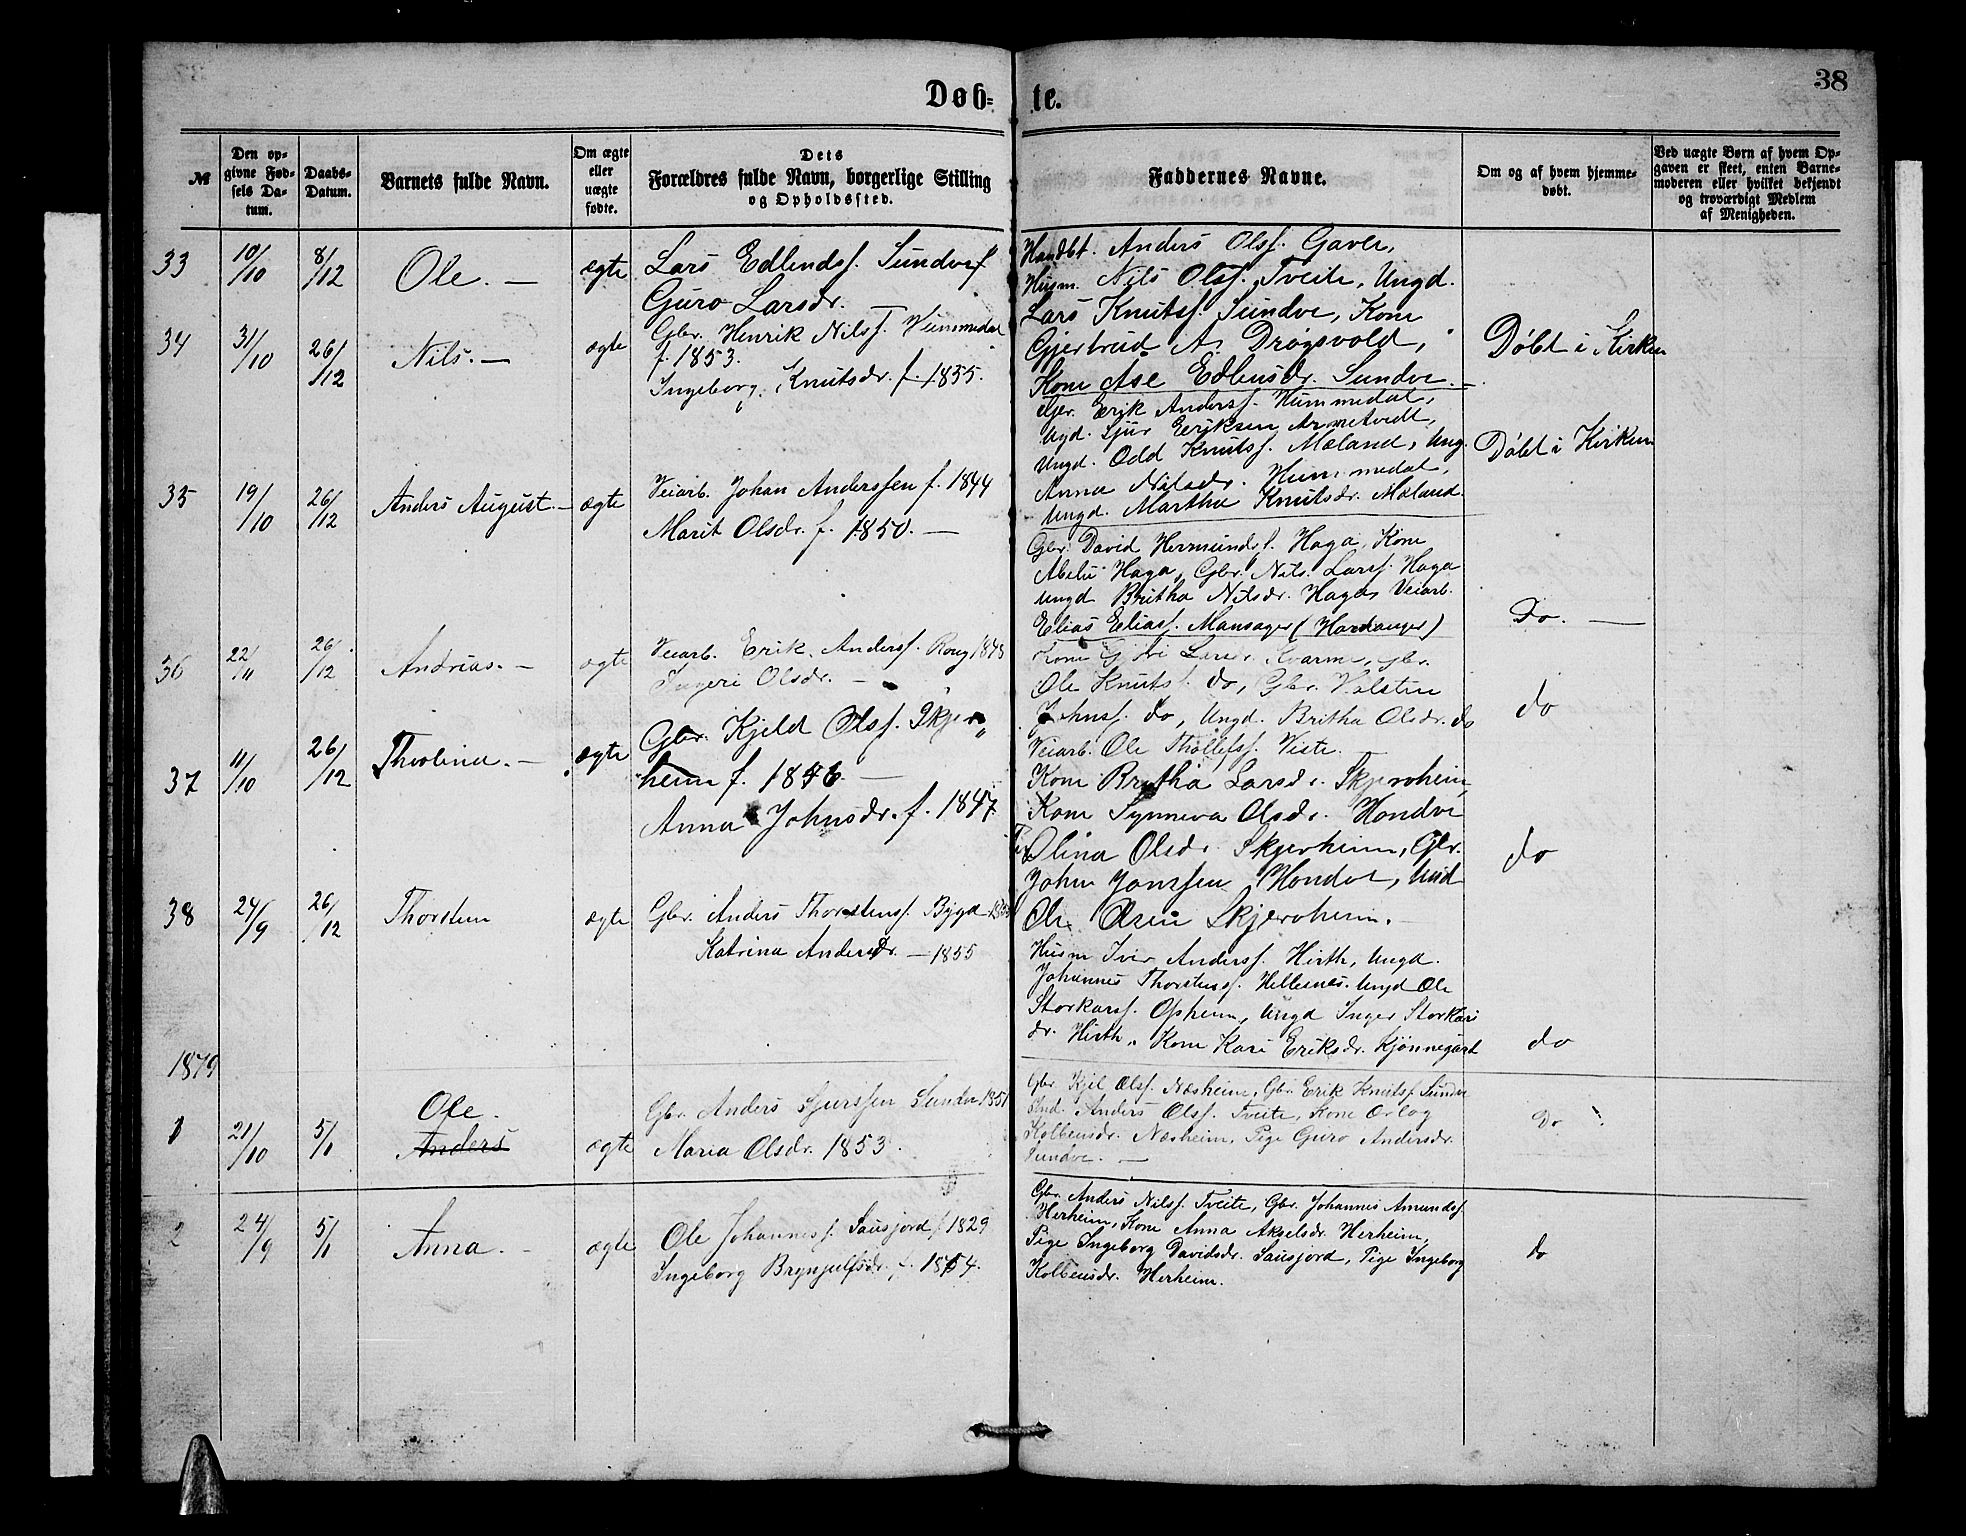 Døb-te.
38
№
Den op-
givne Fød-
sels Da-
tum.
Daabs-
Datum.
Barnets fulde Navn.
Om ægte
eller
uægte
fødte.
Dets
Forældres fulde Navn, borgerlige Stilling
og Opholdssted.
Faddernes Navne.
Om og af hvem hjemme-
døbt.
Ved uægte Børn af hvem Op-
gaven er skeet, enten Barne-
moderen eller hvilket bekjendt
og troværdigt Medlem
af Menigheden.
33 10/10 8/12 Ole. — ægte
Lars Edlendsf. Sundve f
Guro Larsdr. —
Handbt. Anders Olsf. Gaver,
Husm. Nils Olsf. Tveite, Ungd.
Lars Knutsf. Sundve, Kone
Gjertrud A. Drøgsvold,
Kone Ase Edlensdr. Sundve. —
Døbt i Kirken
34 31/10 26/12 Nils. — ægte
Gbr. Henrik Nilsf. Hummedal
f. 1853.
Ingeborg Knutsdr. f. 1855.
Gbr. Erik Andersf. Hummedal,
Ugd. Sjur Eriksen Armetvedt,
Ungd. Odd Knutsf. Mæland, Ung.
Anna Nilsdr. Hummedal,
Ungd. Martha Knutsdr. Mæland.
Døbt i Kirken
35 19/10 26/12 Anders August. — ægte
Veiarb. Johan Anderssen f. 1844
Marit Olsdr. f. 1850. —
Gbr. David Hermundsf. Haga, Kone
Abelu Haga, Gbr. Nils Larsf. Haga
Ungd Britha Nilsdr. Haga, Veiarb.
Elias Eliasf. Mansager (Hardanger)
Do. —
36 22/11 26/12 Andrias. — ægte
Veiarb. Erik Andersf. Rong 1848
Ingeri Olsdr. —
Kone Larsdr. Kvarme, Gbr.
Ole Knutsf. do, Gbr. Halsten
Johnsf. do, Ungd. Britha Olsdr. do
Veiarb. Ole Thollefsf. Viste.
do
37 11/10 26/12 Throlina. — ægte
Gbr. Kjeld Olsf. Skjer„
heim f. 1846 —
Anna Johnsdr. f. 1847
Kone Britha Larsdr. Skjerveheim,
Kone Synneva Olsdr. Hondve
Olina Olsdr. Skjerheim, Gbr.
John Jonssen Hondve, Und
Ole Olsen Skjerveheim. —
do
38 24/9 26/12 Thorsten ægte
Gbr. Anders Thorstensf. Bygd
Katrina Andersdr. — 1855
Husm Iver Andersf. Hirth, Ungd.
Johannes Thorstensf. Hellesnes. Ungd Ole
Storkarsf. Opheim, Ungd Inger Storkars
dr. Hirth, Kone Kari Eriksdr. Kjønnegard
do
1879
1 21/10 5/1 Ole.
Anders ægte
Gbr. Anders Sjurssen Sundve 1851
Maria Olsdr. 1853.
Gbr Kjel Olsf. Næsheim, Gbr. Erik Knutsf Sundve
Ind. Anders Olsf. Tveite, Kone Orlog
Kolbensdr. Næsheim, Pige Guro Andersdr.
Sundve. —
Do
2 24/9 5/1 Anna. — ægte
Ole Johannesf. Sausjord f 1829
Ingeborg Brynjulfsdr. f. 1854.
Gbr. Anders Nilsf. Tveite, Gbr. Johannes Amundsf
Herheim, Kone Anna Akselsdr. Herheim,
Pige Ingeborg Davidsdr. Sausjord, Pige Ingeborg
Kolbensdr. Herheim.
do